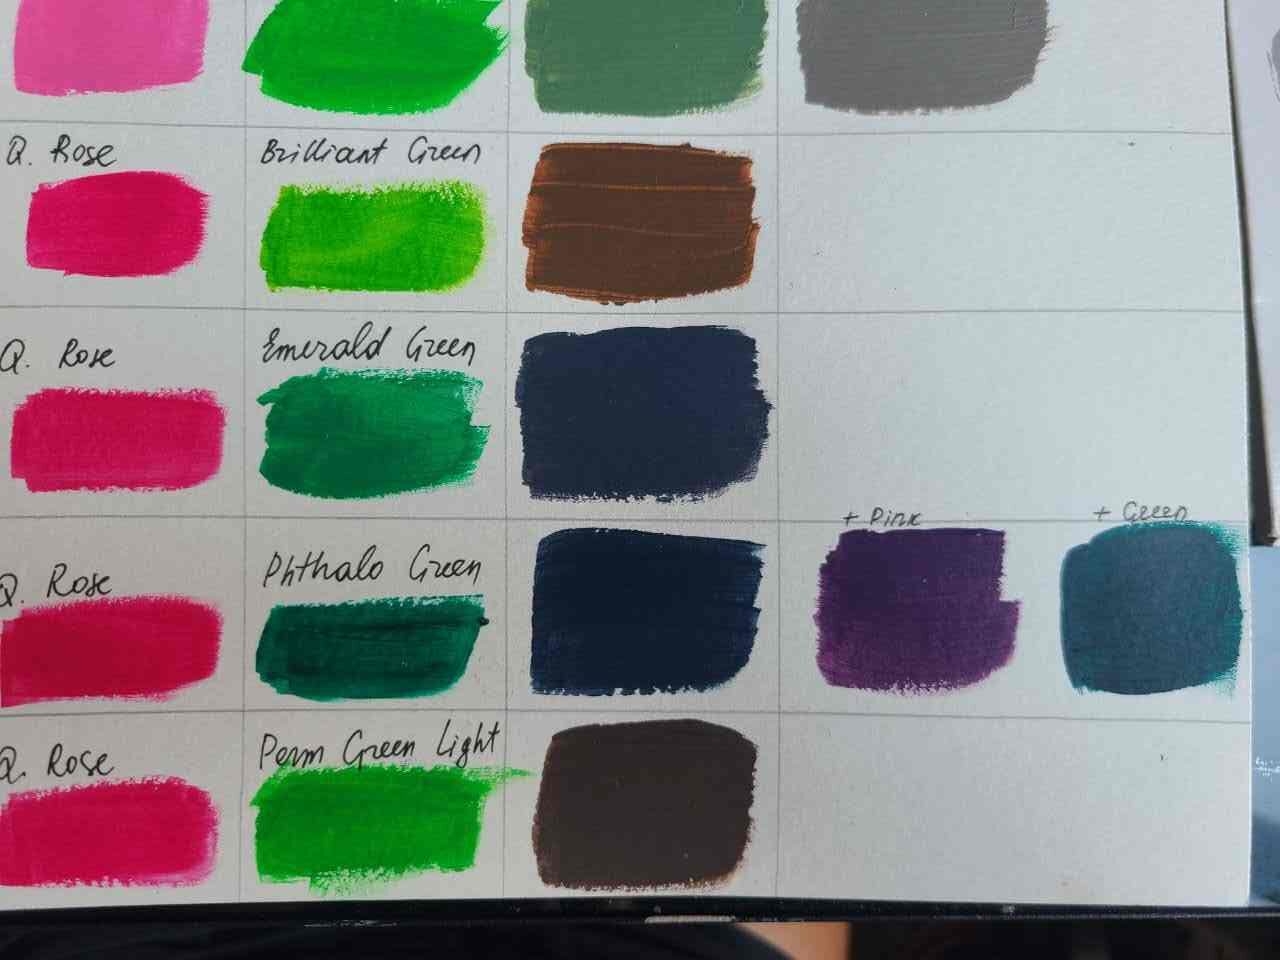 Q. Rose
Brilliant Green
Q. Rose
Emerald Green
+ Pink
+ Green
Q. Rose
Phthalo Green
Q. Rose
Perm Green Light